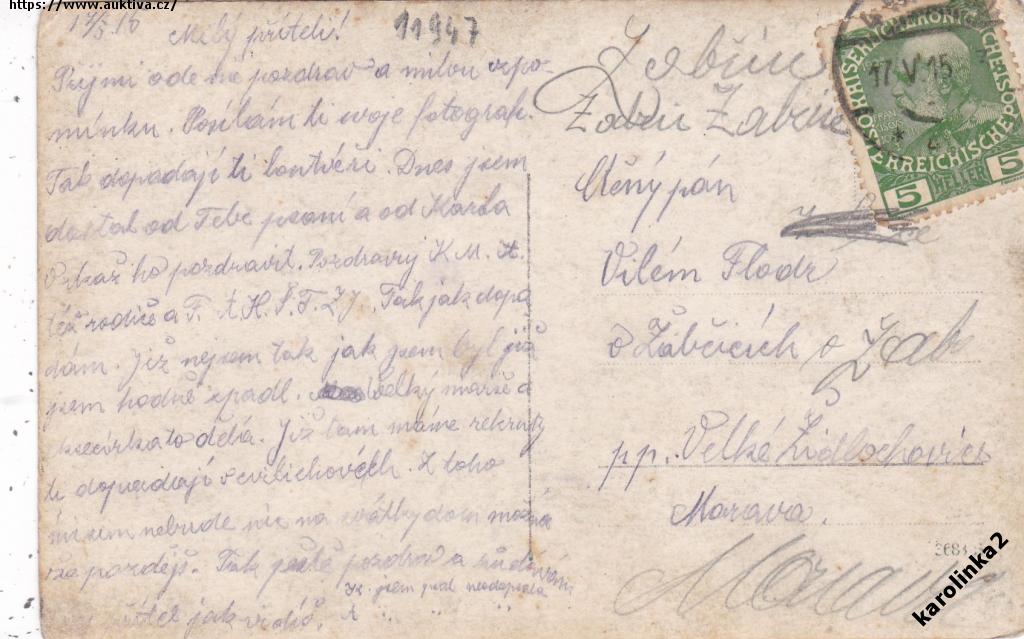 https://www.auktiva.cz/
17/5 15
Milý příteli!
11947
Přijmi ode mě pozdrav a milou vzpo-
mínku. Posílám ti svoje fotografi.
Tak dopadají ti lontvéři. Dnes jsem
dostal od Tebe psaní a od Karla
Vzkaž ho pozdravit. Pozdravuj K. M. A.
též rodiče a F. A. H. Š. F. Z. J. Tak jak dopa
dám. Již nejsem tak jak jsem byl již
jsem hodně spadl. Velký marše a
to dělá. Již tam máme rekruty
ti dopadají v cvilichovéch. Z toho
nebude nic na svátky dom možná
že pozdějš. Tak ještě pozdrav a
jak vidíš.
jsem psal
Žabčic
Žabčic
Ctěný pán
Vilém Flodr
v Žabčicích
Žab
pp. Velké Židlochovice
Morava.
Morava
17 V 15
KAISERL. KÖNIGL.
ÖSTERREICHISCHE POST
5 HELLER 5
3683
karolinka2